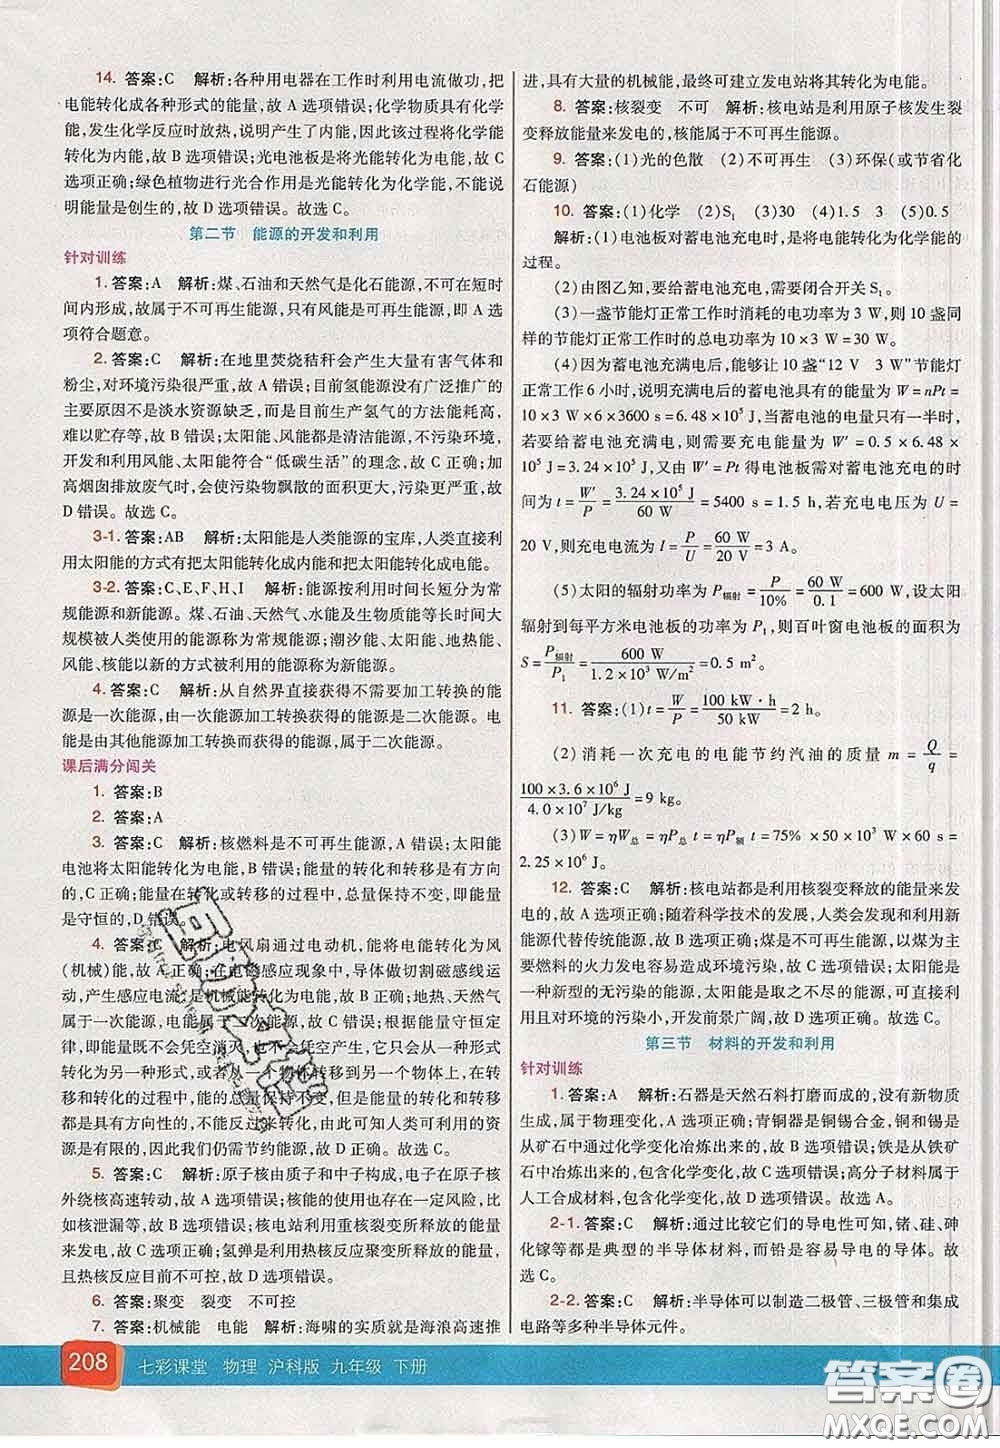 14. 答案:C　解析:各种用电器在工作时利用电流做功,把
电能转化成各种形式的能量,故 A 选项错误;化学物质具有化学
能,发生化学反应时放热,说明产生了内能,因此该过程将化学能
转化为内能,故 B 选项错误;光电池板是将光能转化为电能,故 C
选项正确;绿色植物进行光合作用是光能转化为化学能,不能说
明能量是创生的,故 D 选项错误。故选 C。
第二节　能源的开发和利用
针对训练
1. 答案:A　解析:煤、石油和天然气是化石能源,不可能在短时
间内形成,故属于不可再生能源,只有风能是可再生能源,即 A 选
项符合题意。
2. 答案:C　解析:在地里焚烧秸秆会产生大量有害气体和
粉尘,对环境污染很严重,故 A 错误;目前氢能源没有广泛推广的
主要原因不是淡水资源缺乏,而是目前生产氢气的方法能耗高,
难以贮存等,故 B 错误;太阳能、风能都是清洁能源,不污染环境,
开发和利用风能、太阳能符合“低碳生活”的理念,故 C 正确;加
高烟囱排放废气时,会使污染物飘散的面积更大,污染更严重,故
D 错误。故选 C。
3-1. 答案:AB　解析:太阳能是人类能源的宝库,人类直接利
用太阳能的方式有把太阳能转化成内能和把太阳能转化成电能。
3-2. 答案:C、E、F、H、I　解析:能源按利用时间长短分为常
规能源和新能源。煤、石油、天然气、水能及生物质能等长时间大
规模被人类使用的能源称为常规能源;潮汐能、太阳能、地热能、
风能、核能以新的方式被利用的能源称为新能源。
4. 答案:C　解析:从自然界直接获得不需要加工转换的能
源是一次能源,由一次能源加工转换获得的能源是二次能源。电
能是由其他能源加工转换而获得的能源,属于二次能源。
课后满分闯关
1. 答案:B
2. 答案:A
3. 答案:C　解析:核燃料是不可再生能源,A 错误;太阳能
电池将太阳能转化为电能,B 错误;能量的转化和转移是有方向
的,C 正确;能量在转化或转移的过程中,总量保持不变,即能量
是守恒的,D 错误。
4. 答案:C　解析:电风扇通过电动机,能将电能转化为风
(机械)能,故 A 正确;在电磁感应现象中,导体做切割磁感线运
动,产生感应电流,是机械能转化为电能,故 B 正确;地热、天然气
属于一次能源,电能属于二次能源,故 C 错误;根据能量守恒定
律,即能既不会凭空消灭,也不会凭空产生,它只会从一种形式
转化为其他形式,或者从一个物体转移到另一个物体,而在转化
和转移的过程中,能量的总量保持不变,但能量的转移和转化都
是具有方向性的,不能反过来转化,由此可知人类可利用的
资源是会越来越少的,所以我们仍需节约能源,故 D 正确。故选 C。
5. 答案:C　解析:原子核由质子和中子构成,电子在原子核
外绕核高速转动,故 A 选项错误;核能的使用存在一定风险,比
如核泄漏等,故 B 选项错误;核电站利用重核裂变所释放的能量
来发电,故 C 选项正确;氢弹是利用热核反应聚变所释放的能量,
且热核反应目前不可控,故 D 选项错误。
6. 答案:聚变　裂变　不可控
7. 答案:机械能　电能　解析:海啸的实质就是海浪高速推
进,具有大量的机械能,最终可建立发电站将其转化为电能。
8. 答案:核裂变　不可　解析:核电站是利用原子核发生裂
变释放能量来发电的,核能属于不可再生能源。
9. 答案:(1)光的色散　(2)不可再生　(3)环保(或节省化
石能源)
10. 答案:(1)化学　(2)S₁　(3)30　(4)1.5　3　(5)0.5
解析:(1)电池板对蓄电池充电时,是将电能转化为化学能的
过程。
(2)由图乙知,要给蓄电池充电,需要闭合开关 S₁。
(3)一盏节能灯正常工作时消耗的电功率为 3 W,则 10 盏同
样的节能灯正常工作时的总电功率为 10×3 W=30 W。
(4)因为蓄电池充满电后,能够让 10 盏“12 V　3 W”节能灯
正常工作 6 小时,说明充满电的蓄电池具有的能量为 W=nPt=
10×3 W×6×3600 s=6.48×10⁵ J,当蓄电池的电量只有一半时,
若要给蓄电池充满电,则需要充电能量为 W′=0.5×6.48×
10⁵ J=3.24×10⁵ J,又由 W′=Pt 得电池板需对蓄电池充电的时
间为 t=W′/P=3.24×10⁵ J/60 W=5400 s=1.5 h,若充电电压为 U=
20 V,则充电电流为 I=P/U=60 W/20 V=3 A。
(5)太阳的辐射功率为 P辐射=P/10%=60 W/0.1=600 W,设太阳
辐射到每平方米电池板的功率为 P₁,则百叶窗电池板的面积为
S=P辐射/P₁=600 W/1.2×10³ W/m²=0.5 m²。
11. 答案:(1)t=W/P=100 kW·h/50 kW=2 h。
(2)消耗一次充电的电能节约汽油的质量 m=Q/q=
100×3.6×10⁶ J/4.0×10⁷ J/kg=9 kg。
(3)W=ηW总=ηP总 t=ηP额 t=75%×50×10³ W×60 s=
2.25×10⁶ J。
12. 答案:C　解析:核电站都是利用核裂变释放的能量来发
电的,故 A 选项正确;随着科学技术的发展,人类会发现和利用新
能源代替传统能源,故 B 选项正确;煤是不可再生能源,以煤为主
要燃料的火力发电容易造成环境污染,故 C 选项错误;太阳能是
一种新型的无污染的能源,太阳能是取之不尽的能源,可直接利
用且对环境的污染小,开发前景广阔,故 D 选项正确。故选 C。
第三节　材料的开发和利用
针对训练
1. 答案:A　解析:石器是天然石料打磨而成的,没有新物质
生成,属于物理变化,A 选项正确;青铜器是铜锡合金,铜和锡是
从矿石中通过化学变化冶炼出来的,故 B 选项错误;铁是从铁矿
石中冶炼出来的,包含化学变化,故 C 选项错误;高分子材料属于
人工合成材料,包含化学变化,故 D 选项错误。故选 A。
2-1. 答案:C　解析:通过比较它们的导电性可知,锗、硅、砷
化镓等都是典型的半导体材料,而铅是容易导电的导体。故
选 C。
2-2. 答案:C　解析:半导体可以制造二极管、三极管和集成
电路等多种半导体元件。
208　七彩课堂　物理　沪科版　九年级　下册
答案圈
MXQE.COM